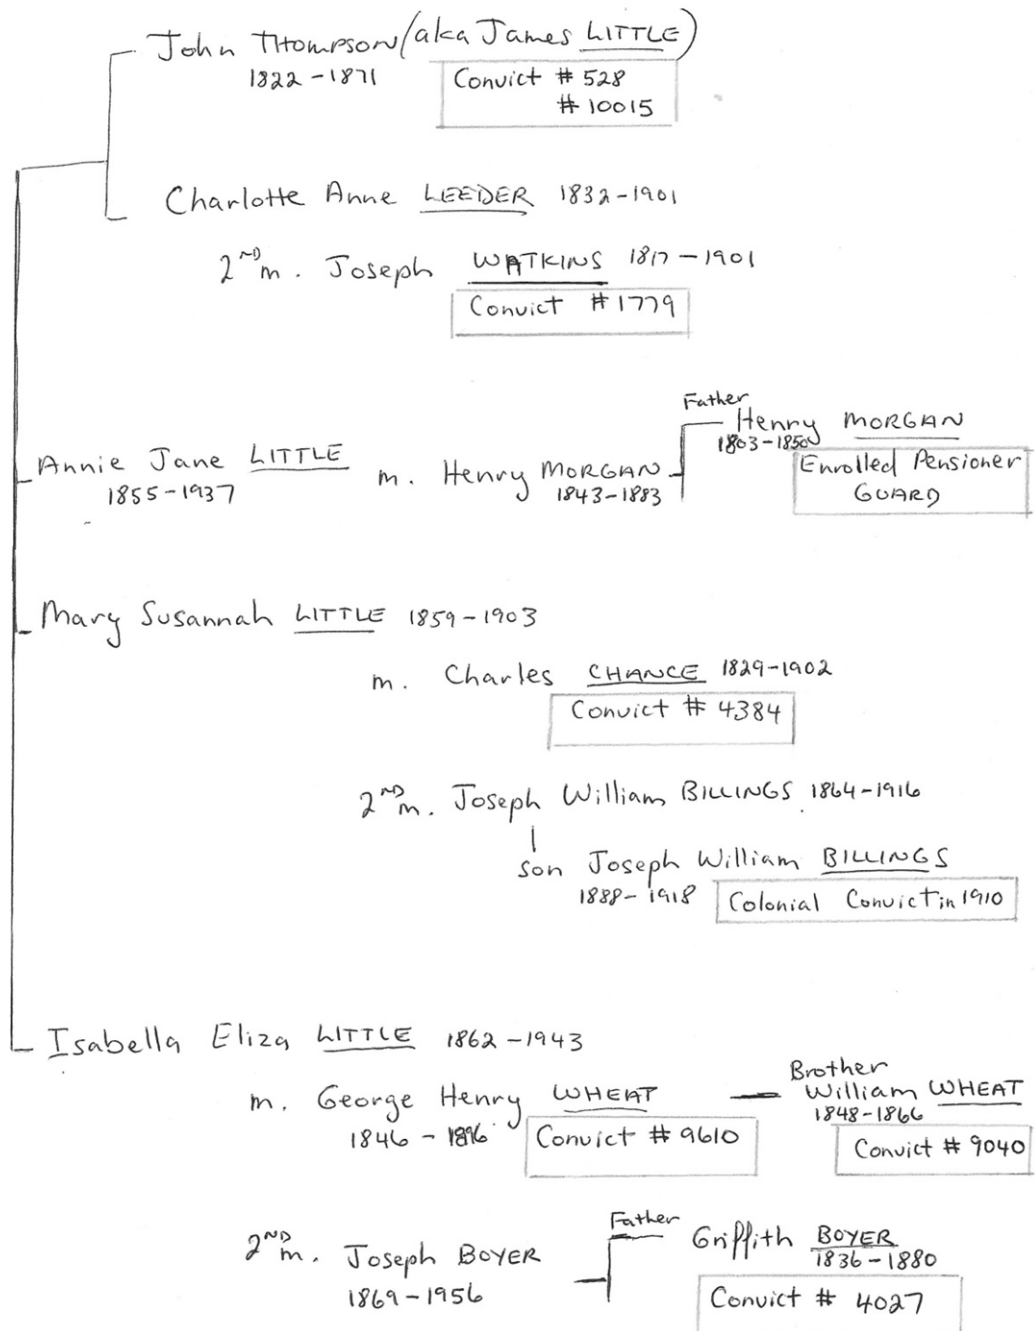 John Thompson (aka James LITTLE)
1822-1871
Convict # 528
# 10015
Charlotte Anne LEEDER 1832-1901
2ND m. Joseph WATKINS 1817-1901
Convict #1779
Father
Henry MORGAN
1803-1850
Enrolled Pensioner
GUARD
Annie Jane LITTLE m. Henry MORGAN
1855-1937 1843-1883
Mary Susannah LITTLE 1859-1903
m. Charles CHANCE 1829-1902
Convict # 4384
2ND m. Joseph William BILLINGS 1864-1916
son Joseph William BILLINGS
1888-1918 Colonial Convict in 1910
Isabella Eliza LITTLE 1862-1943
m. George Henry WHEAT
1846-1896 Convict # 9610
Brother
William WHEAT
1848-1866
Convict # 9040
2ND m. Joseph BOYER
1869-1956
Father
Griffith BOYER
1836-1880
Convict # 4027